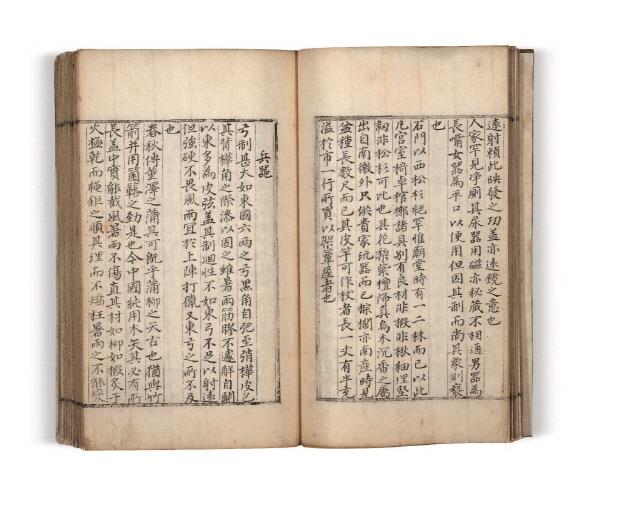 遠射頼此映發之功盖亦遠鏡之意也
人家罕見净厠其尿器用磁亦秘藏不相通男器為
長觜女器為平口以便用但因其制而尚其象則褻
也
石門以西松杉絶罕惟廟堂時有一二株而已以此
凡宫室椅卓棺槨諸具別有良材非椴非楸細理堅
韌非松杉可比也其花梨紫檀降真烏木沉香之屬
出自南徼外只供貴家玩器而已棕櫚亦南産時見
盆種長數尺而已其皮竿可作杖者長一丈有半充
溢於市一行所買以架簟屋者也
兵器
弓制甚大如東國六兩之弓黑角自弝至弰樺皮
其背樺角之際漆以固之雖暑雨筋膠不遽解自關
以東多為皮弦盖其制迴性不如東弓不足以射遠
但強硬不畏風雨宜於上陣打獵又東弓之所不及
也
春秋傳董澤之蒲其可旣乎蒲柳之矢古也猶與竹
箭并用箘簵之勁是也今中國純用木矢其必有所
長盖中實能截風暑雨不傷直其材如柳如椴炙于
火極乾而繩鉅之順其理而不撟枉暑雨之不能